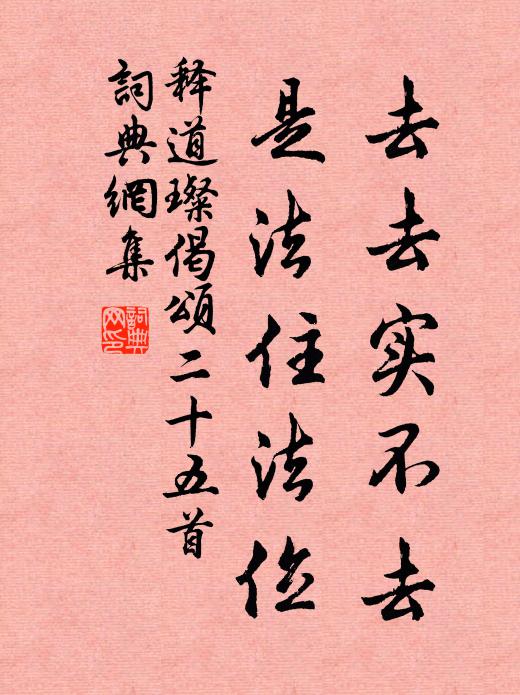 去去实不去
是法住法位
释道璨偈颂二十五首
詞典網集
詞典网印